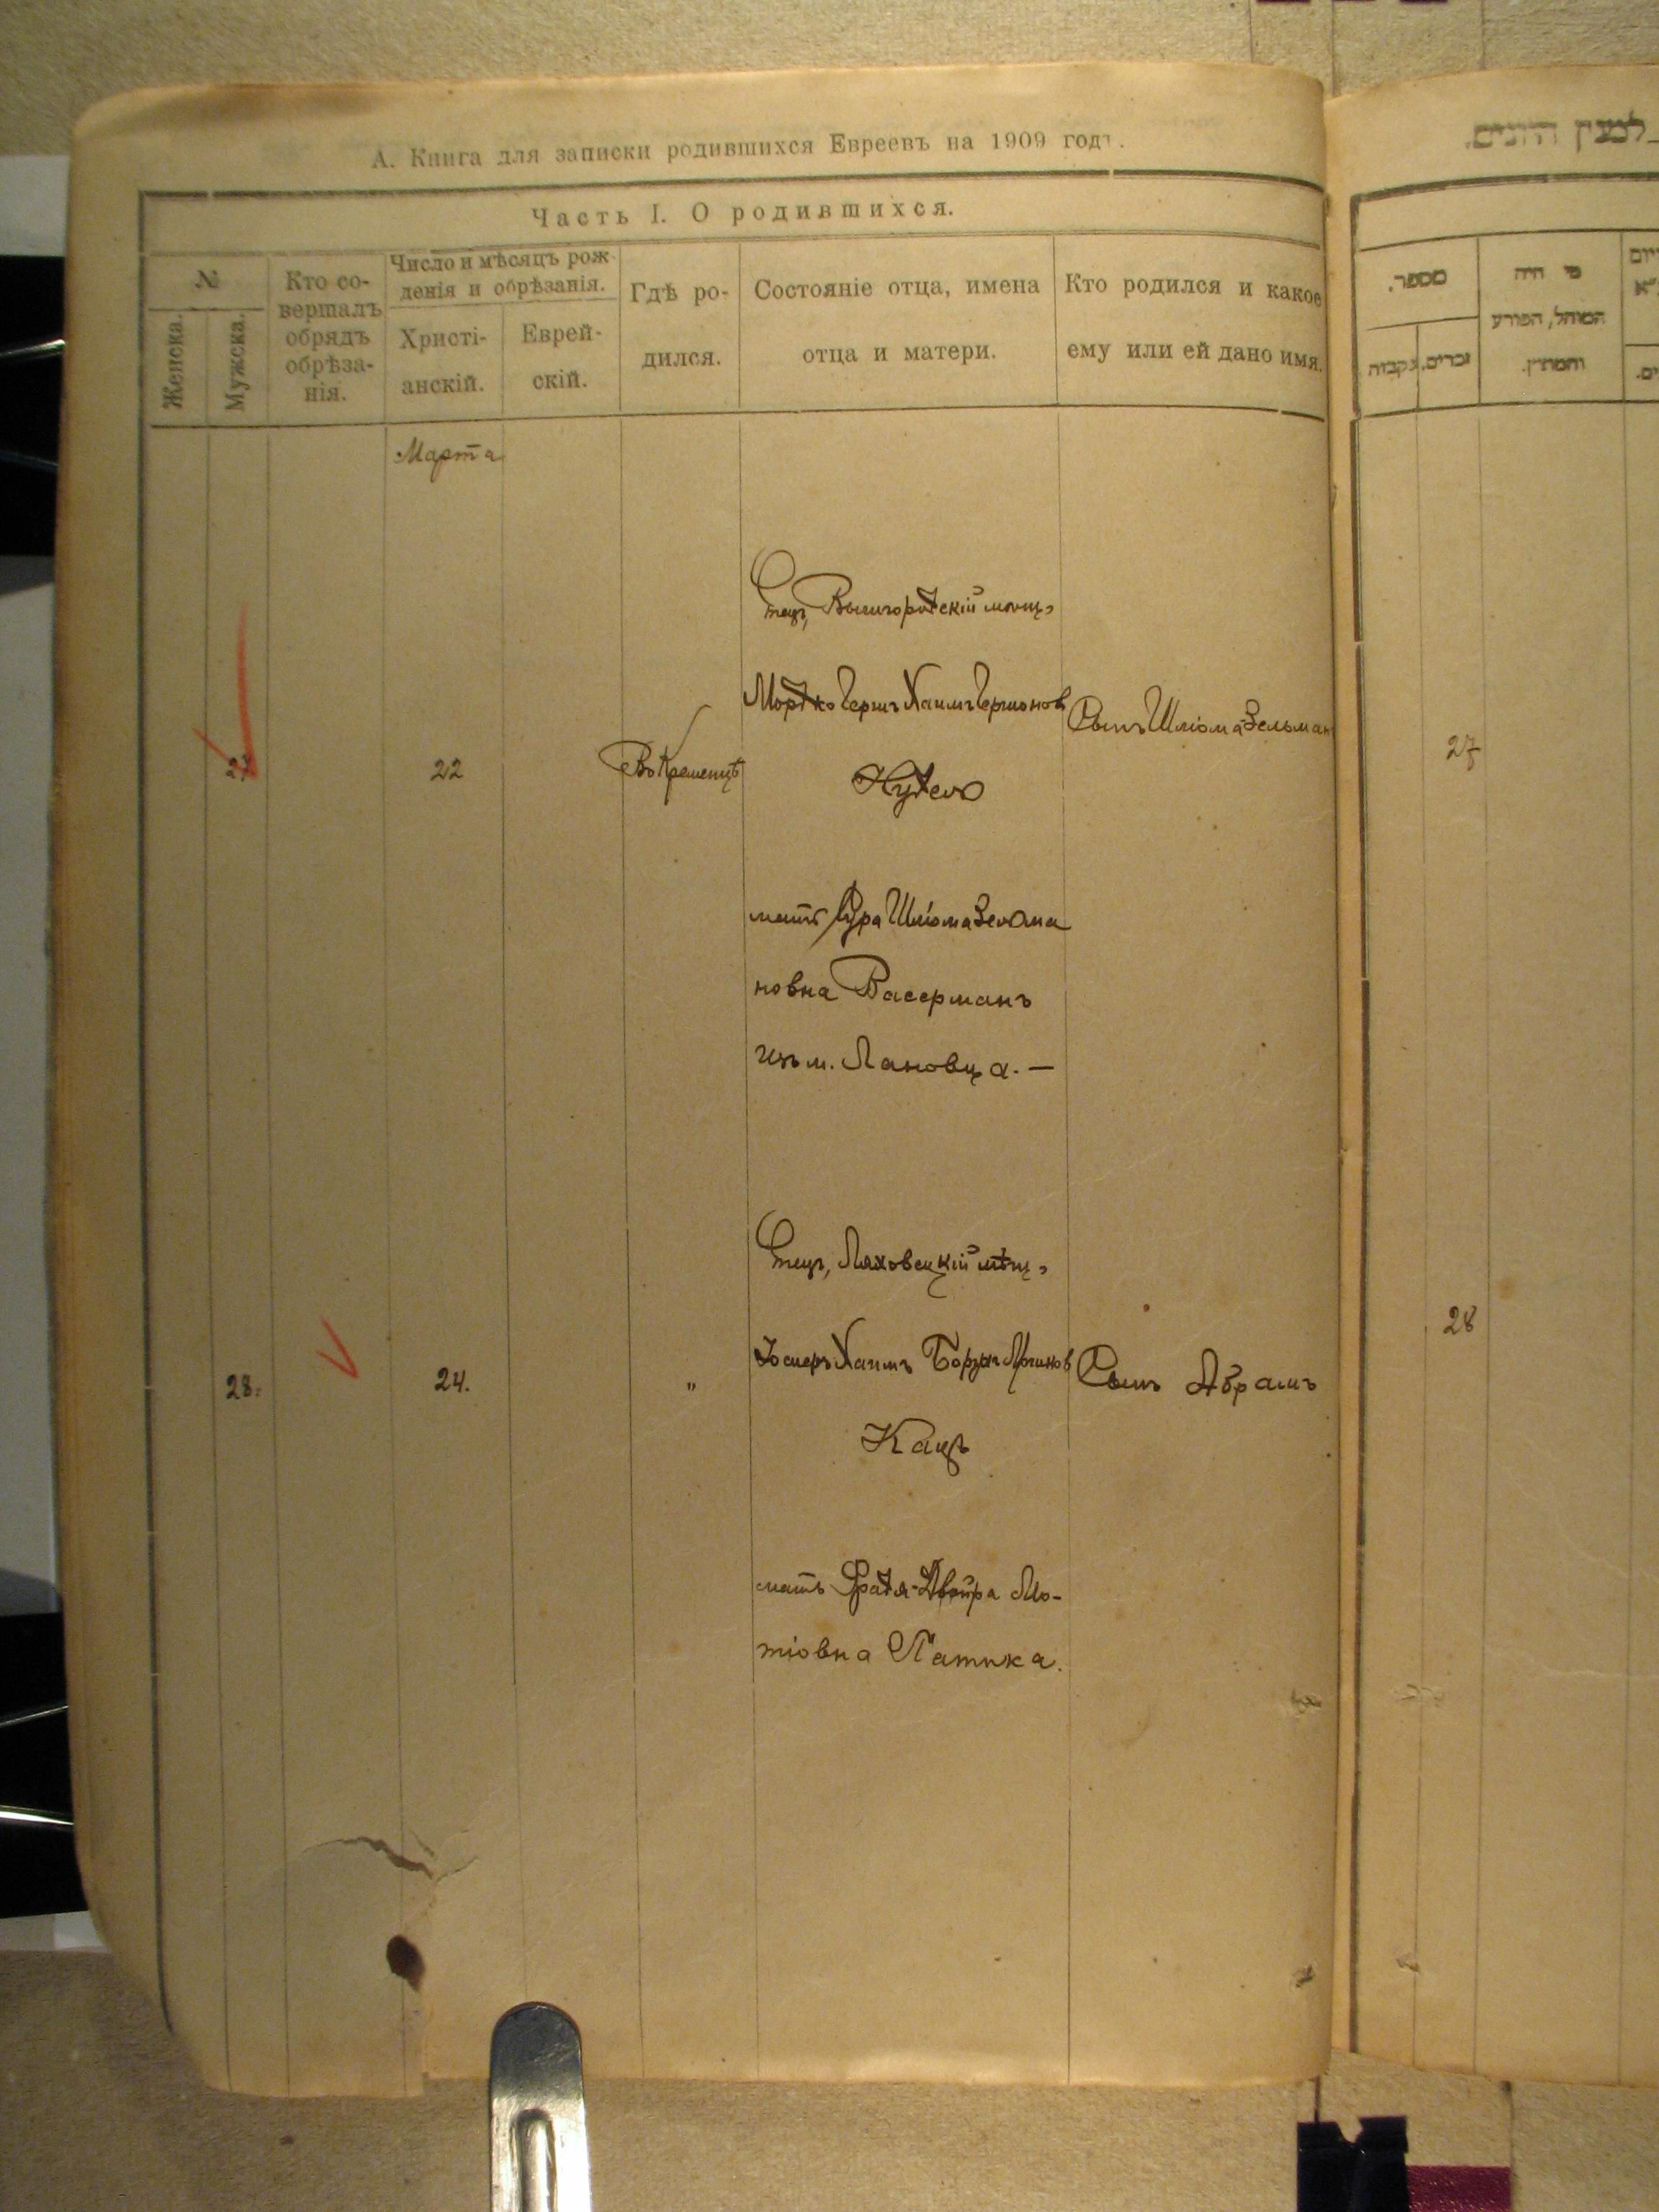 А. Книга для записки родившихся Евреевъ на 1909 годъ.
Часть I. О родившихся.
№
Женска.
Мужска.
Кто со-
вершалъ
обрядъ
обрѣза-
нія.
Число и мѣсяцъ рож-
денія и обрѣзанія.
Христі-
анскій.
Еврей-
скій.
Гдѣ ро-
дился.
Состояніе отца, имена
отца и матери.
Кто родился и какое
ему или ей дано имя.
Марта
27
22
Въ Кременцѣ
Отецъ, Вышгородскій мѣщ.
Мордко Гершъ Хаимъ Гершонов
Нудель
мать Сура Шліома Зельма
новна Васерманъ
изъ м. Лановца. —
Сынъ Шліома-Зельман
28.
24.
"
Отецъ, Ляховецкій мѣщ.
Хаимъ
Кацъ
мать Фрадя-Двойра Мо-
тіовна Патика.
Сынъ Абрамъ
למצין הזנים.
מספר.
זכרים.
נקבות
מי היה
המוהל, הפורע
והמתיקן.
27
28